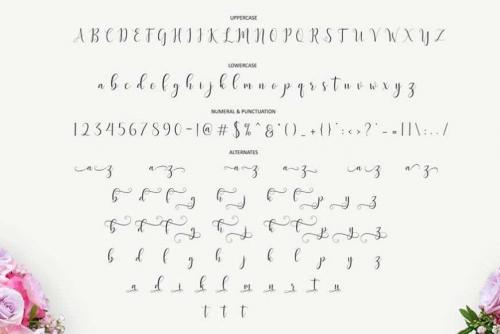 UPPERCASE
A B C D E F G H I J K L M N O P Q R S T U V W X Y Z
LOWERCASE
a b c d e f g h i j k l m n o p q r s t u v w x y z
NUMERAL & PUNCTUATION
1 2 3 4 5 6 7 8 9 0 - ! @ # $ % ^ & * ( ) _ + { } " : < > ? ` ~ = [ ] \ ; . , /
ALTERNATES
a z a z a z a z a a z
b d f g h j k l p y z
b d f g h j k l p y z
b d f g h j k l p y z
a d i k l m n r t u
t t t